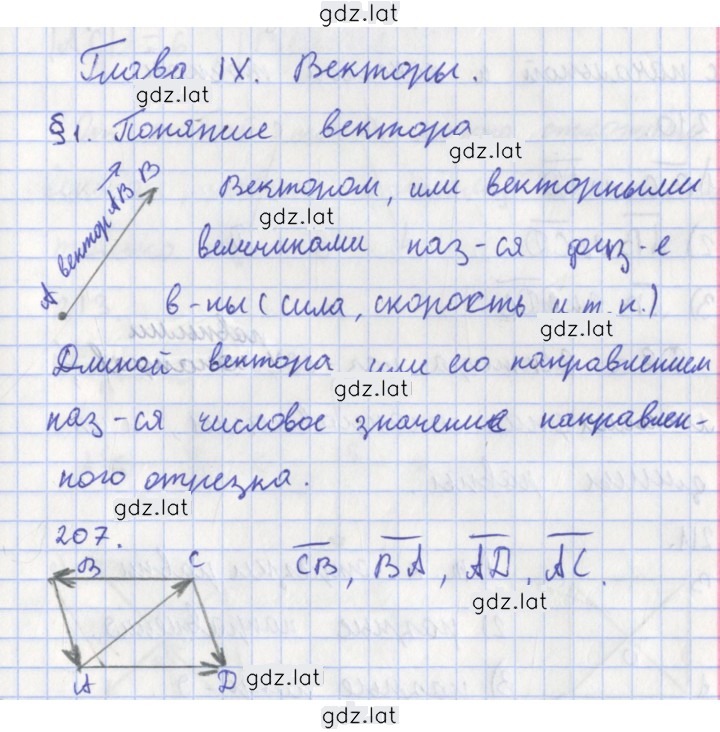 gdz.lat
Глава IX. Векторы.
gdz.lat
§1. Понятие вектора
gdz.lat
A вектор AB B
Вектором, или векторными
gdz.lat
величинами наз-ся физ-е
в-ны (сила, скорость и т.п.)
gdz.lat
Длиной вектора или его направлением
gdz.lat
наз-ся числовое значение направлен-
ного отрезка.
gdz.lat
207.
B C
CB, BA, AD, AC.
gdz.lat
A D
gdz.lat
gdz.lat